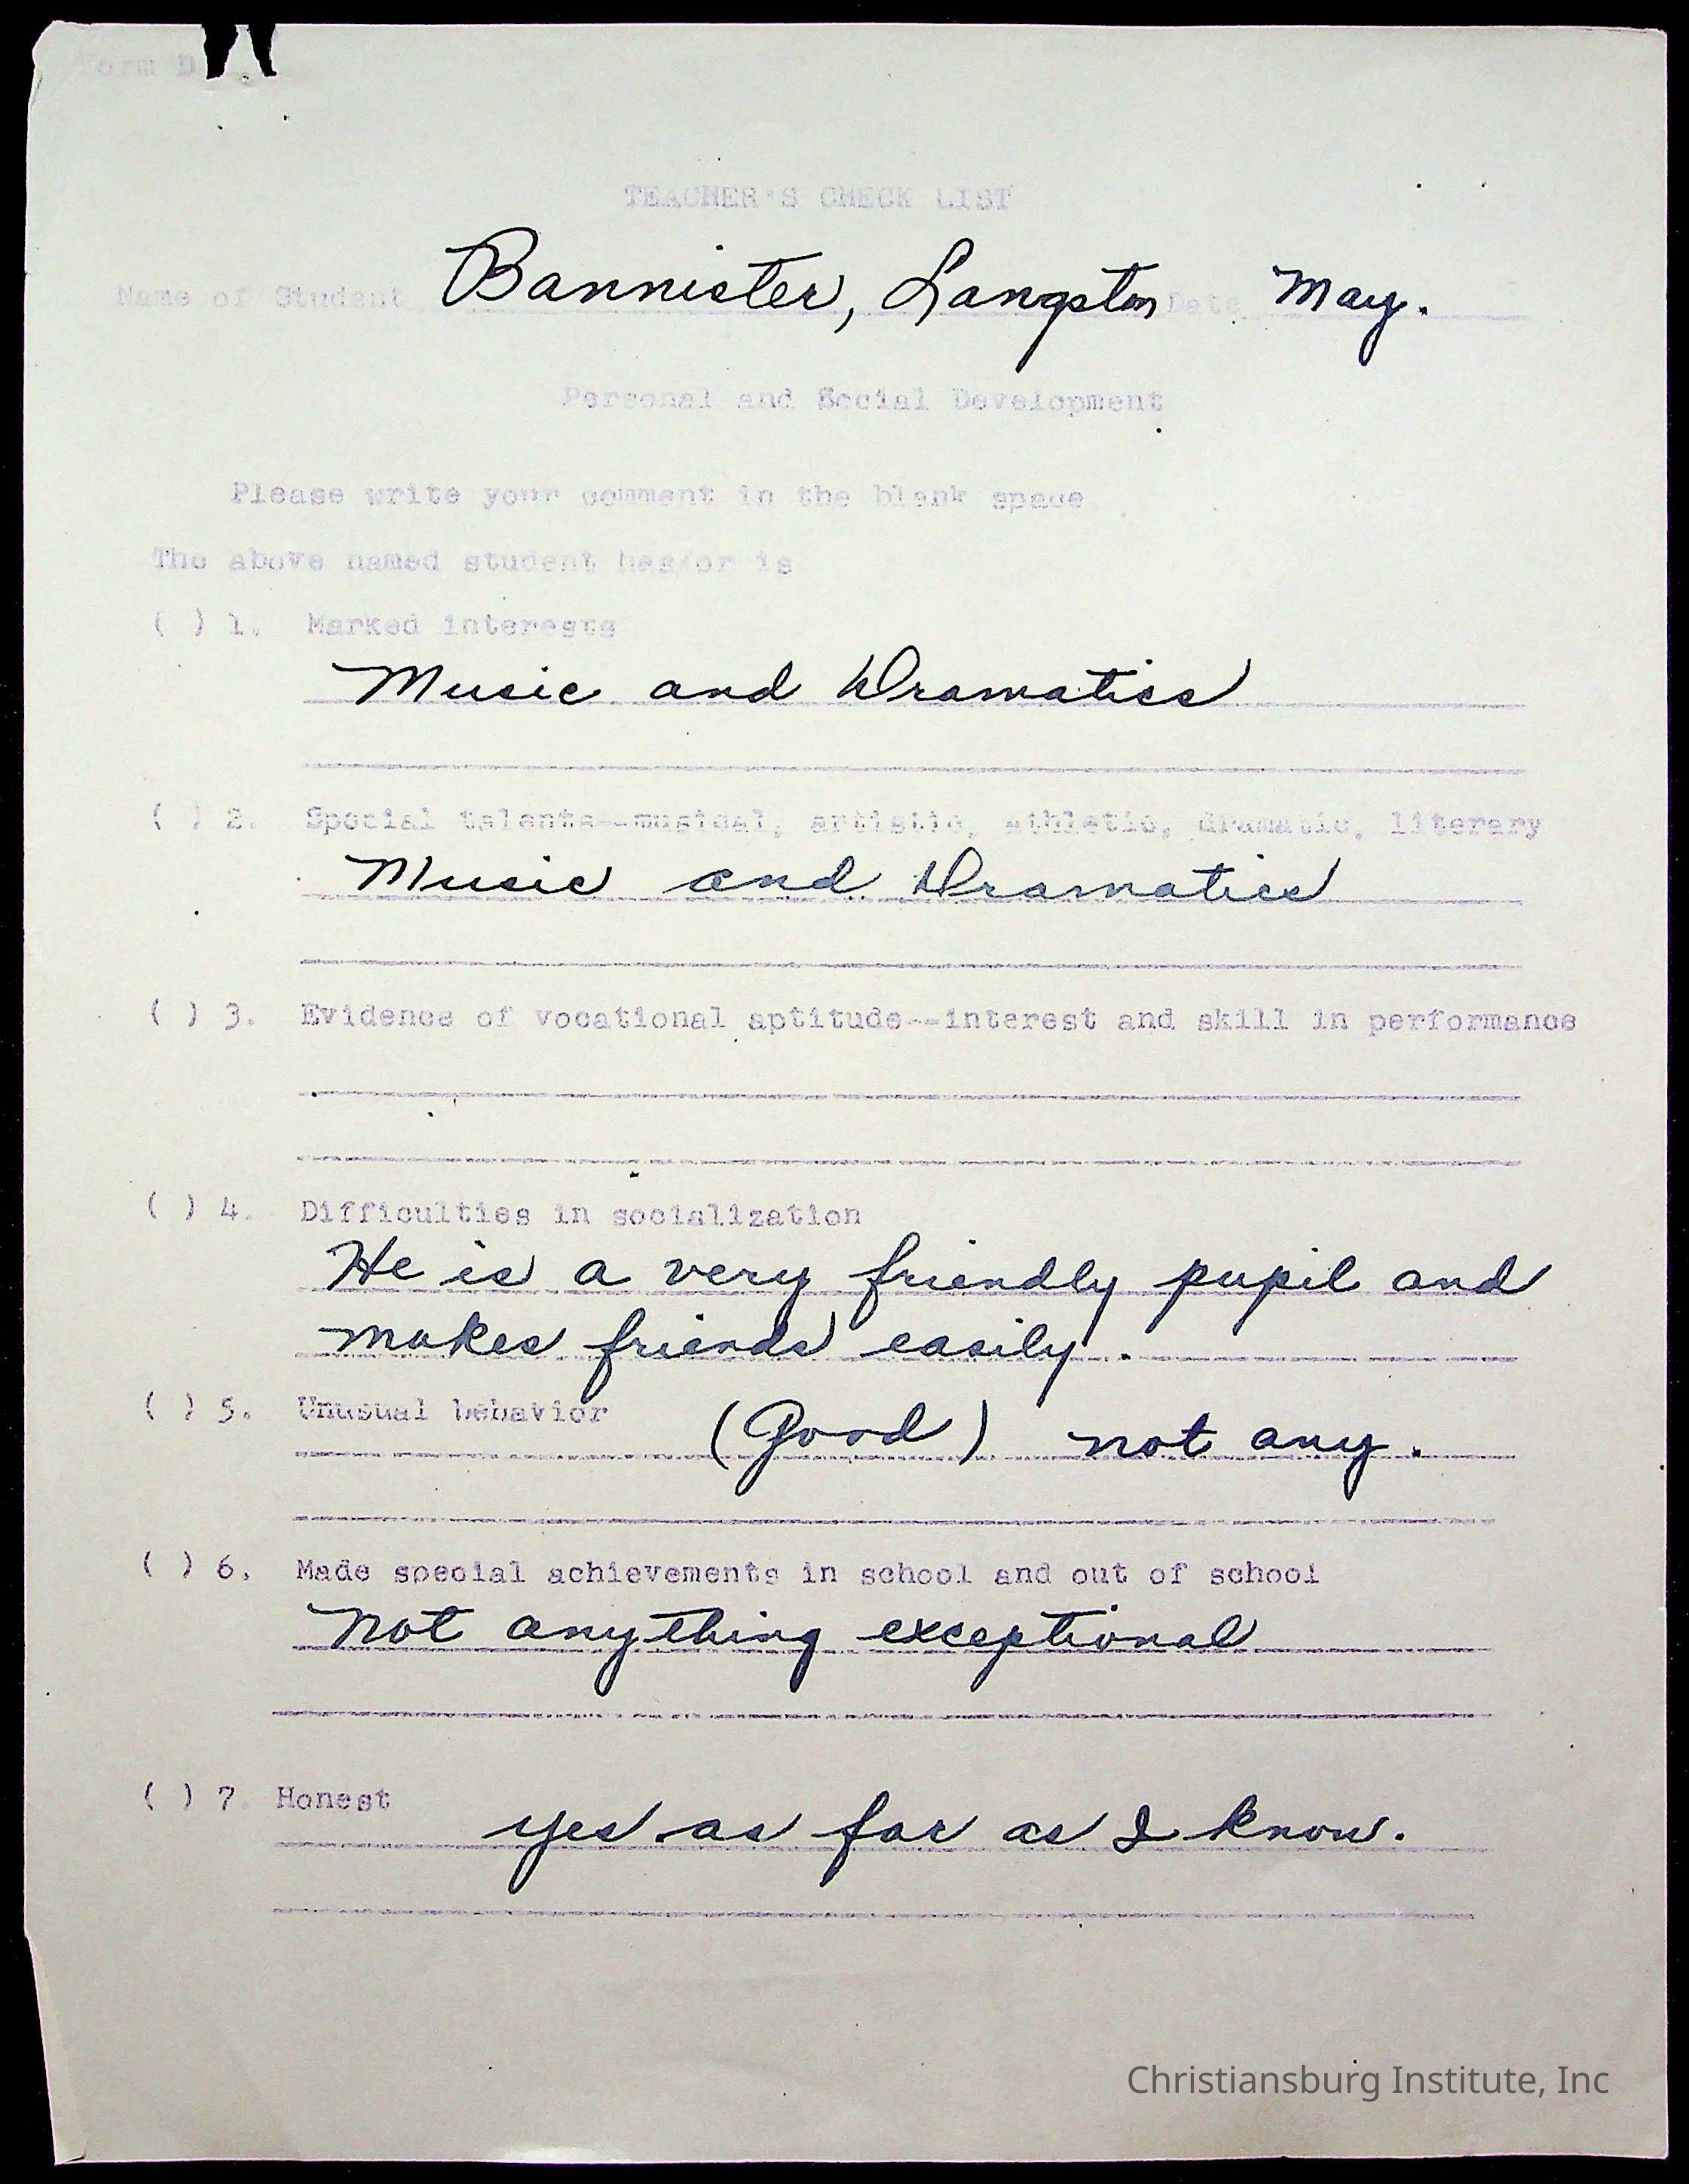 Form D
TEACHER'S CHECK LIST
Name of Student Bannister, Langston Date May.
Personal and Social Development
Please write your comment in the blank space.
The above named student has/or is
( ) 1. Marked interests
Music and Dramatics
( ) 2. Special talents--musical, artistic, athletic, dramatic, literary
Music and Dramatics
( ) 3. Evidence of vocational aptitude--interest and skill in performance
( ) 4. Difficulties in socialization
He is a very friendly pupil and
makes friends easily.
( ) 5. Unusual behavior (Good) not any.
( ) 6. Made special achievements in school and out of school
Not anything exceptional
( ) 7. Honest yes as far as I know.
Christiansburg Institute, Inc